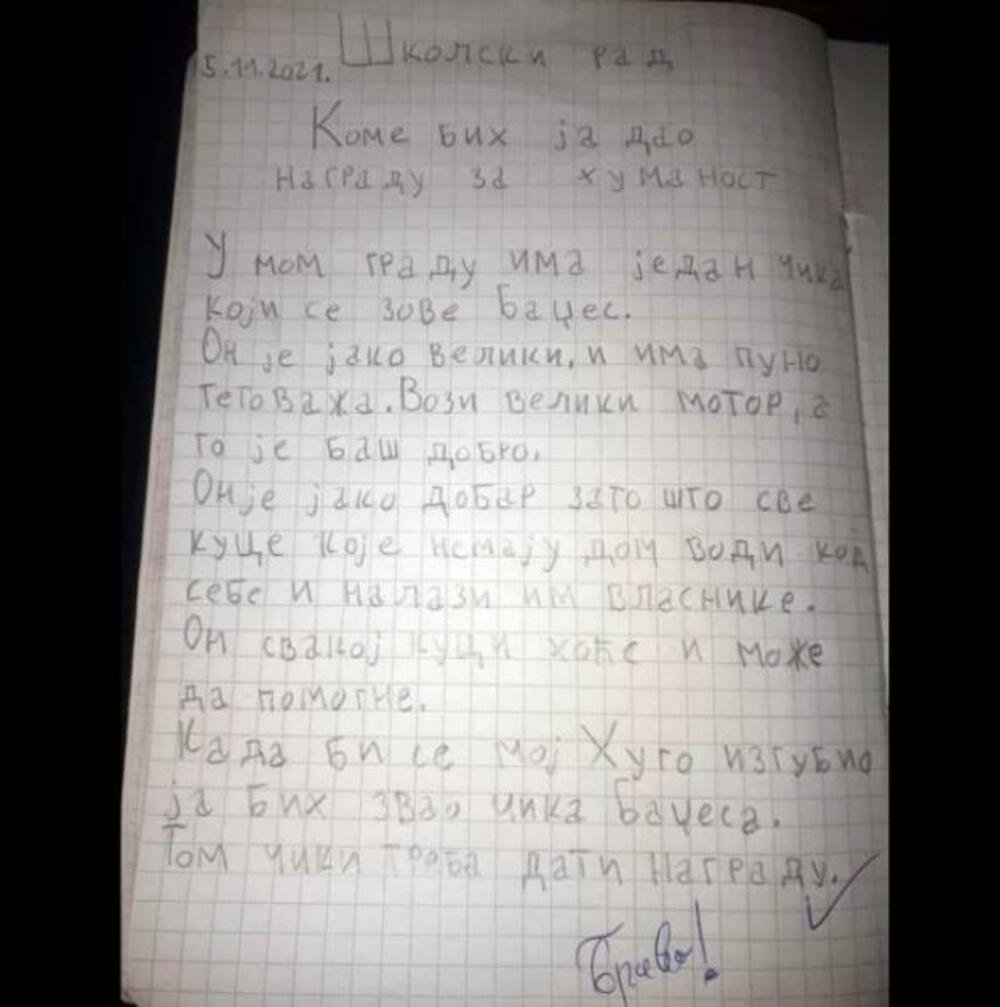 Школски рад
5.11.2021.
Коме бих ја дао
награду за хуманост
У мом граду има један чика
који се зове Бацес.
Он је јако велики, и има пуно
тетоважа. Вози велики мотор, а
то је баш добро.
Он је јако добар зато што све
куце које немају дом води код
себе и налази им власнике.
Он свакој куци хоће и може
да помогне.
Када би се мој Хуго изгубио
ја бих звао чика Бацеса.
Том чики треба дати награду.
Браво!